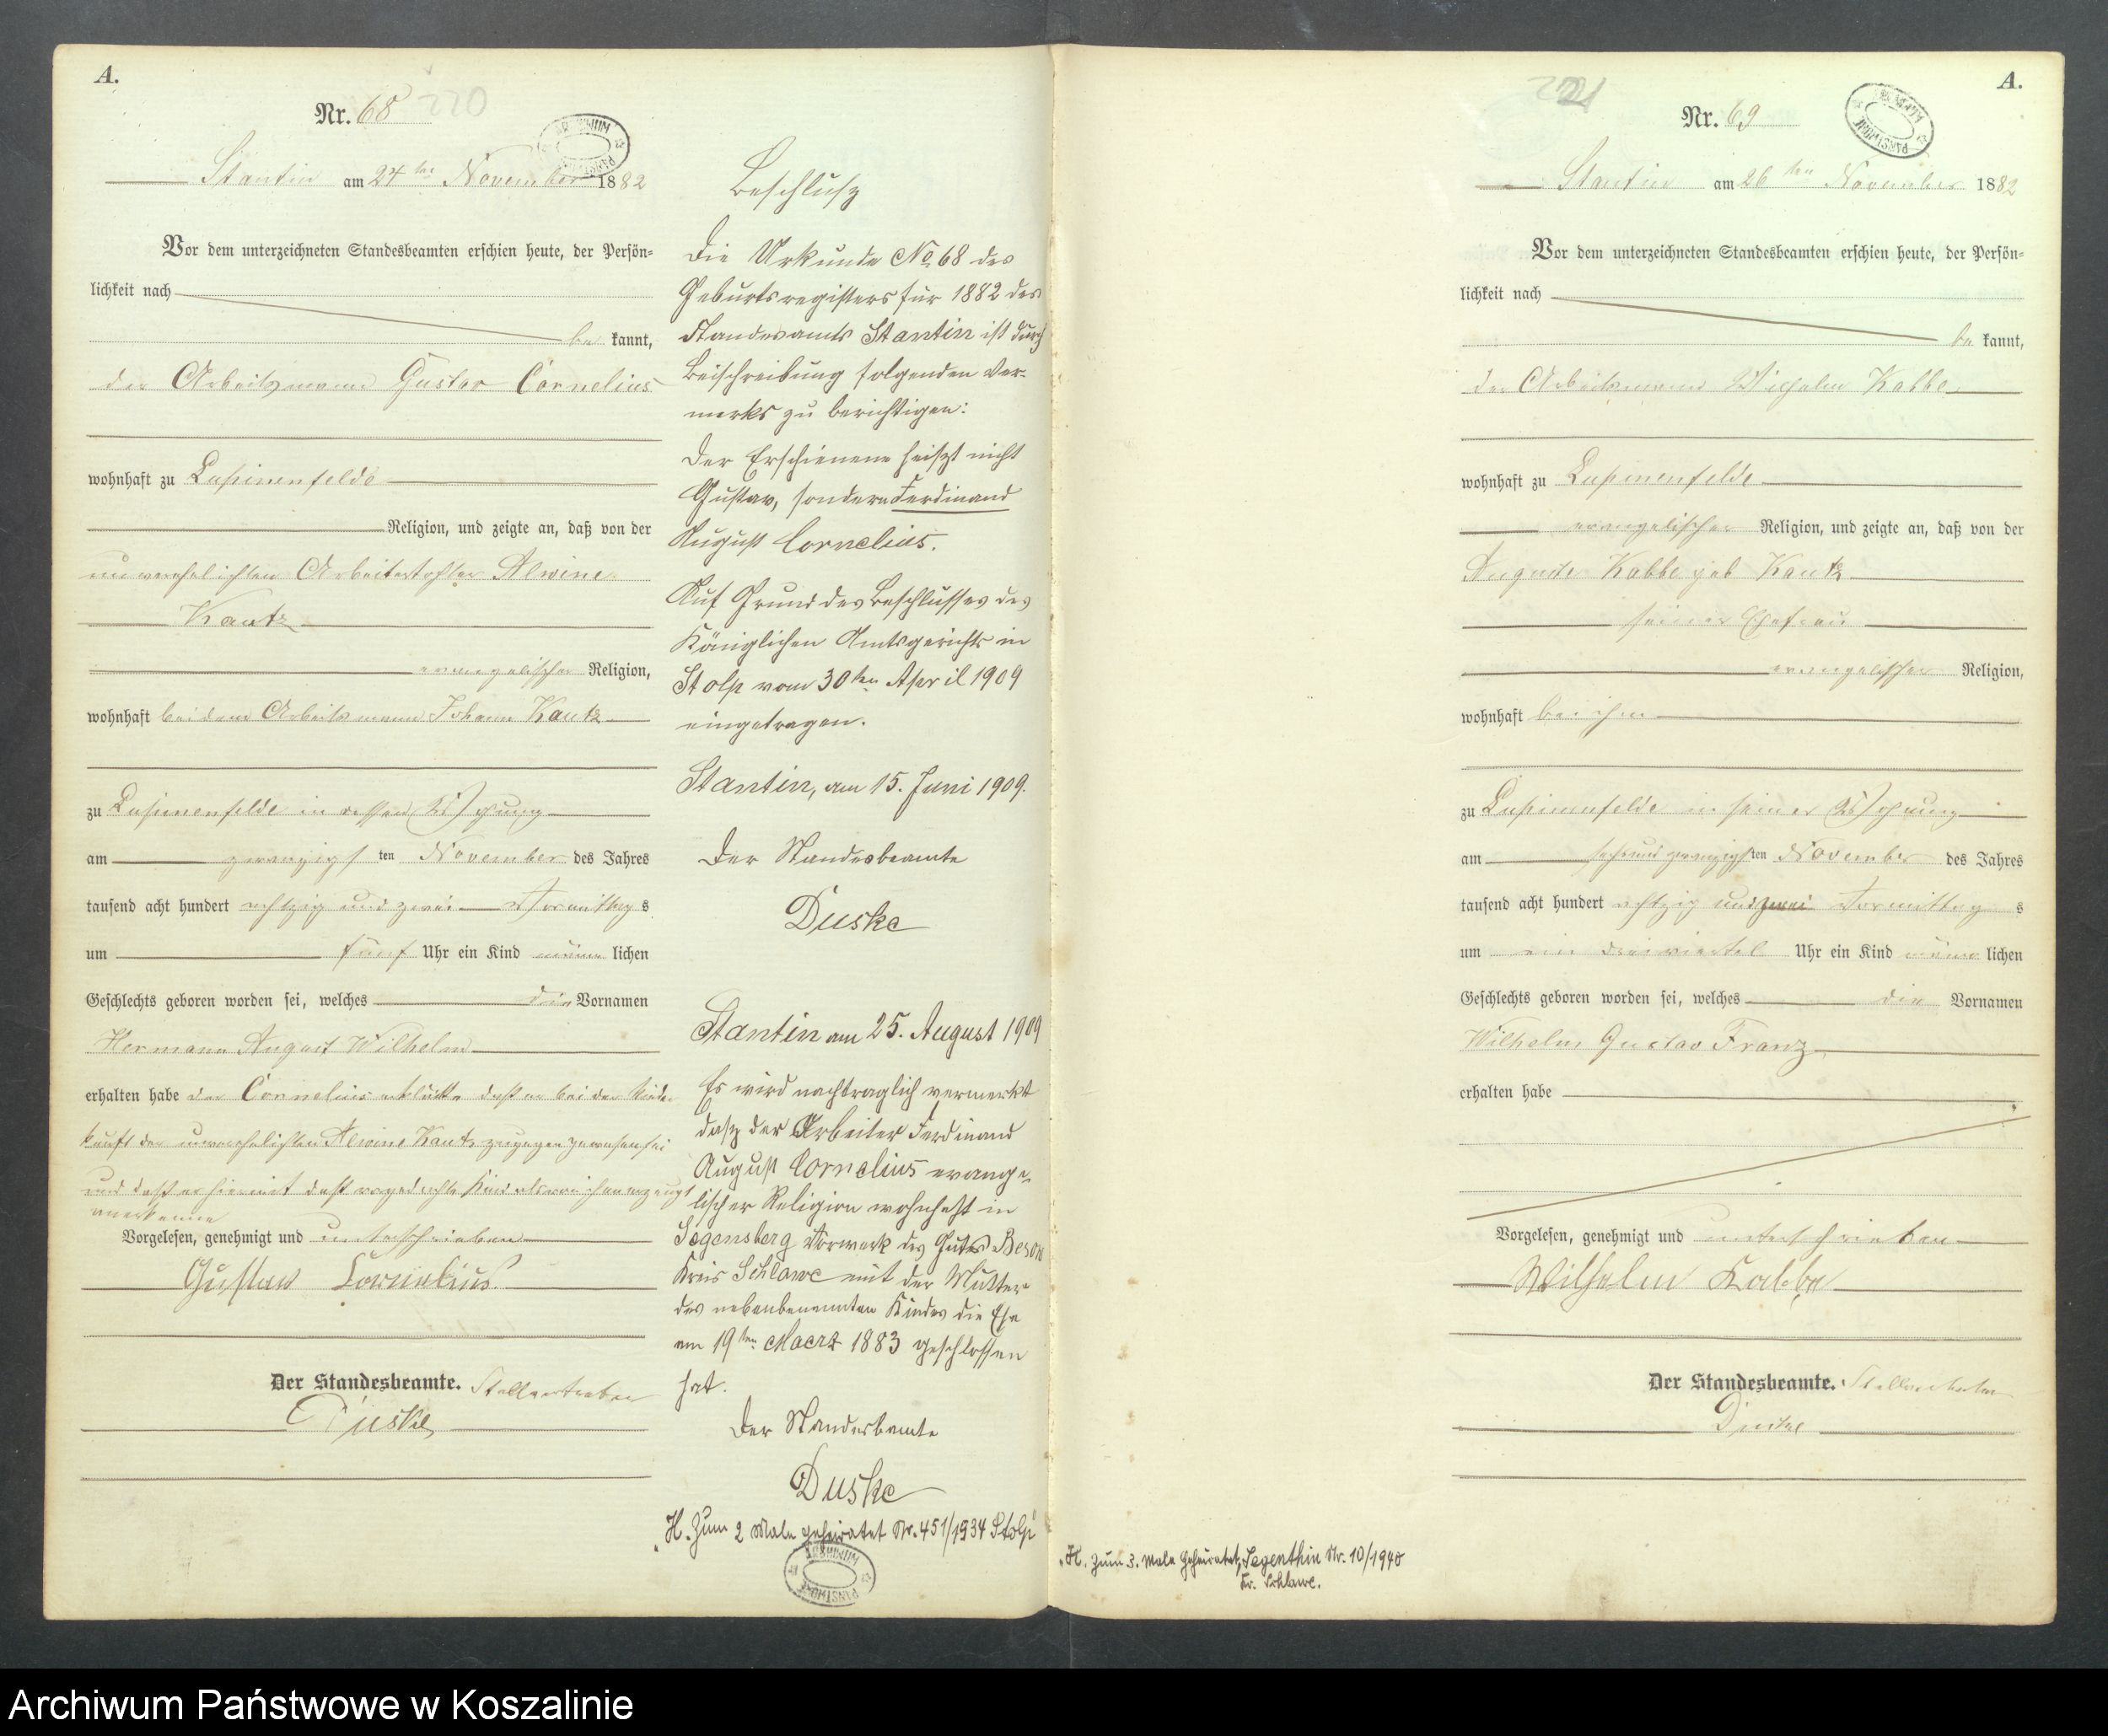 A.
Nr. 68
220
Stantin am 24ten November 1882
Vor dem unterzeichneten Standesbeamten erschien heute, der Persön-
lichkeit nach
be kannt,
der Arbeitsmann Gustav Cornelius
wohnhaft zu Lupinenfelde
Religion, und zeigte an, daß von der
unverehelichten Arbeitertochter Alwine
Kautz
evangelischer Religion,
wohnhaft bei dem Arbeitsmann Johann Kautz
zu Lupinenfelde in dessen Wohnung
am zwanzigsten November des Jahres
tausend acht hundert achtzig und zwei Vormittags
um fünf Uhr ein Kind männlichen
Geschlechts geboren worden sei, welches die Vornamen
Hermann August Wilhelm
erhalten habe der Cornelius erklärte daß er bei der Nieder-
kunft der unverehelichten Alwine Kautz zugegen gewesen sei
und daß er hiermit daß Kind als von ihm erzeugt
anerkenne
Vorgelesen, genehmigt und unterschrieben
Gustaw Cornelius
Der Standesbeamte. Stellvertreter
Duske
Beschlusz
Die Urkunde No 68 des
Geburtsregisters für 1882 des
Standesamts Stantin ist durch
Beischreibung folgenden Ver-
merks zu berichtigen:
Der Erschienene heiszt nicht
Gustav, sondern Ferdinand
August Cornelius.
Auf Grund des Beschlusses des
Königlichen Amtsgerichts in
Stolp vom 30ten April 1909
eingetragen.
Stantin, am 15. Juni 1909.
Der Standesbeamte
Duske
Stantin am 25. August 1909
Es wird nachtraglich vermerkt
dasz der Arbeiter Ferdinand
August Cornelius evange-
lischer Religion wohnhaft in
Segensberg Vorwerk des Gutes
Kreis Schlawe mit der Mutter
des nebenbenannten Kindes die Ehe
am 19ten Maerz 1883 geschlossen
hat.
Der Standesbeamte
Duske
H. Zum 2 Male geheiratet Nr. 451/1934 Stolp
H. zum 3. Male geheiratet, Segenthin Nr. 10/1940
Kr. Schlawe.
A.
221
Nr. 69
Stantin am 26ten November 1882
Vor dem unterzeichneten Standesbeamten erschien heute, der Persön-
lichkeit nach
be kannt,
der Arbeitsmann Wilhelm Kabbe
wohnhaft zu Lupinenfelde
evangelischer Religion, und zeigte an, daß von der
Auguste Kabbe geb Kautz
seiner Ehefrau
evangelischer Religion,
wohnhaft bei ihm
zu Lupinenfelde in seiner Wohnung
am sechsundzwanzigsten November des Jahres
tausend acht hundert achtzig und zwei Vormittags
um ein dreiviertel Uhr ein Kind männlichen
Geschlechts geboren worden sei, welches die Vornamen
Wilhelm Gustav Franz
erhalten habe
Vorgelesen, genehmigt und unterschrieben
Wilhelm Kabbe
Der Standesbeamte. Stellvertreter
Duske
Archiwum Państwowe w Koszalinie